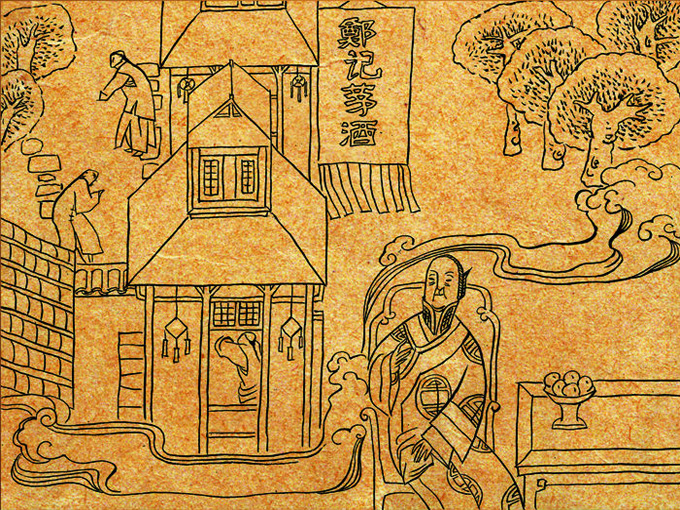 鄭记茅酒